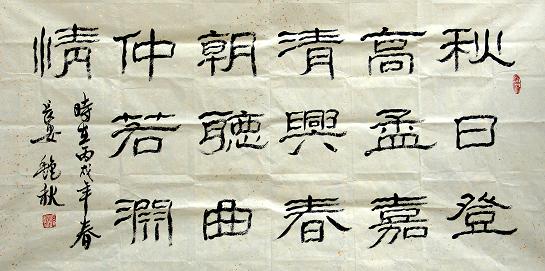 秋日登
高孟嘉
清興春
朝聽曲
仲若澗
情
時在丙戌年春
秋